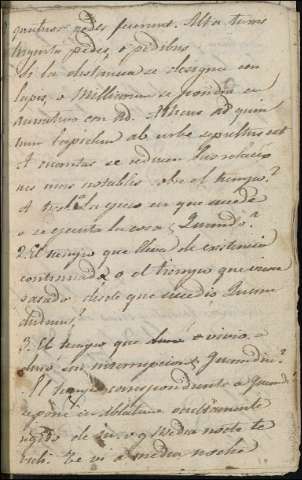 quatuor pedes fuerunt. Alta turris
triginta pedes, o pedibus
Si la distancia se designa con
lapis, o Milliarium se pondra en
acusativo con ad. Atticus ad quin
tum lapidem ab urbe sepultus est
A cuantas se reducen las relacio
nes mas notables sobre el tiempo?
A tres. 1.ª la epoca en que sucede
o se ejecuta la cosa, Quando?
2. El tiempo que lleva de existencia
continuada o el tiempo que viene
pasado desde que sucedio Quam
dudum?
3. El tiempo que duró o vivio, o
duró sin interrupcion, Quamdiu?
El tiempo correspondiente a Quando
se pone en ablativo
regido de in. v. g. Media nocte te
vidi. Te vi a media noche